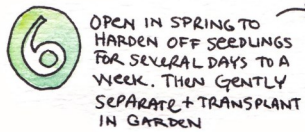 6
OPEN IN SPRING TO
HARDEN OFF SEEDLINGS
FOR SEVERAL DAYS TO A
WEEK. THEN GENTLY
SEPARATE + TRANSPLANT
IN GARDEN